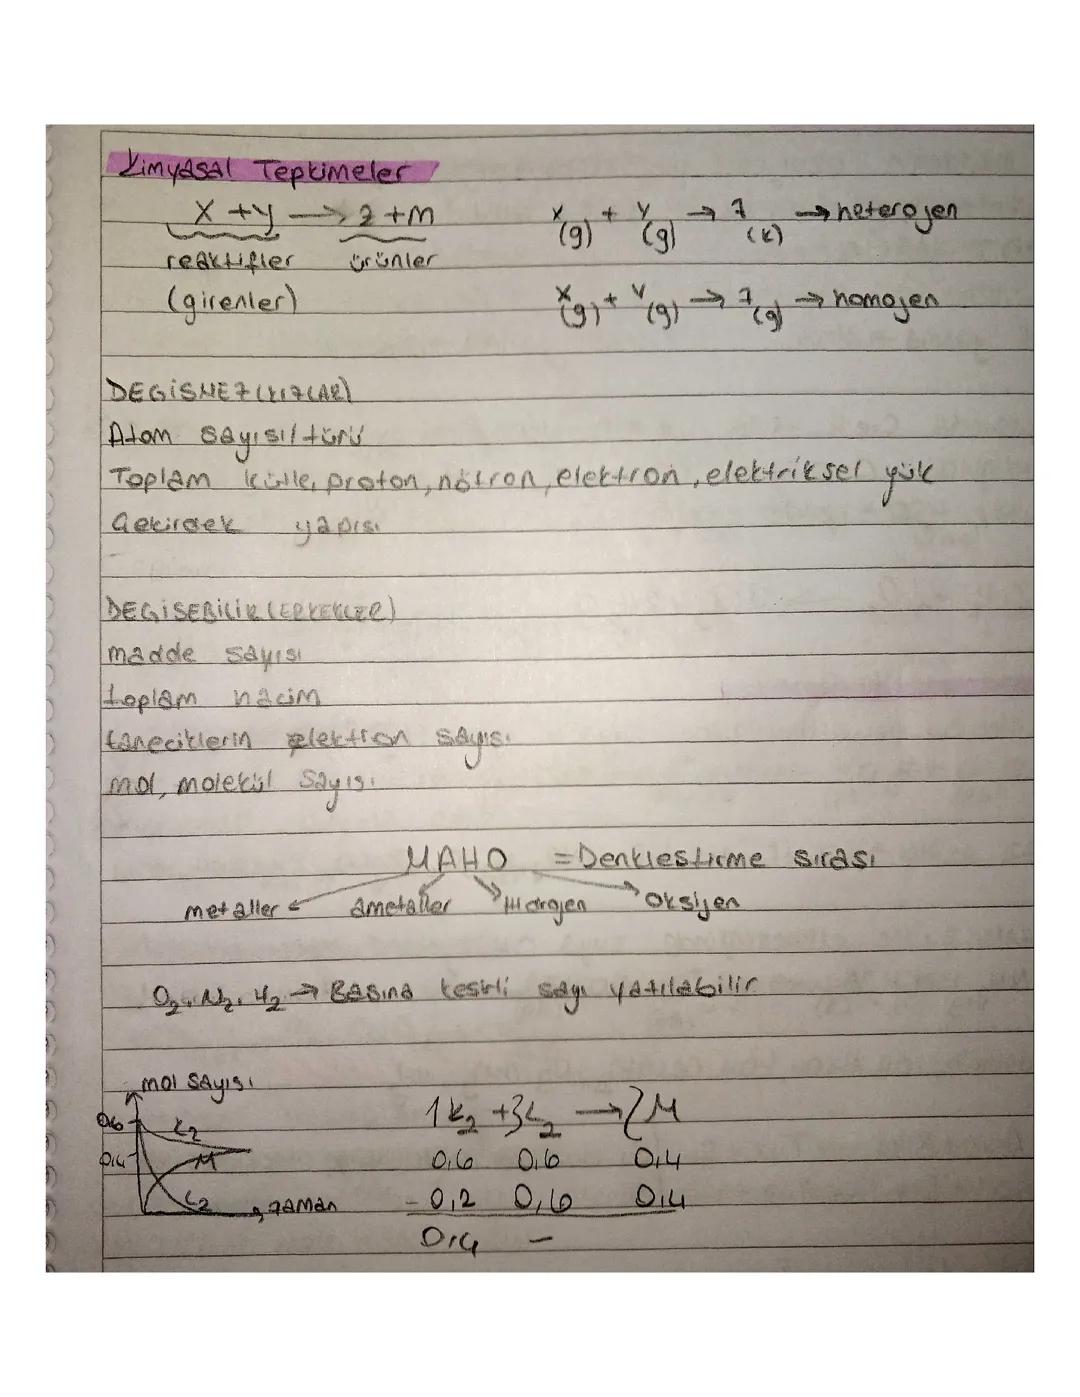 Kimyasal Tepkimeler
X + Y → Z + M
reaktifler ürünler
(girenler)
X(g) + Y(g) → Z(k) → heterojen
X(g) + Y(g) → Z(g) → homojen
DEGİSMEZ (KIZLAR)
Atom sayısı/türü
Toplam kütle, proton, nötron, elektron, elektriksel yük
Çekirdek yapısı
DEGİSEBİLİR (ERKEKLER)
madde sayısı
toplam hacim
taneciklerin elektron sayısı
mol, molekül sayısı
MAHO = Denklestirme sırası
metaller ametaller Hidrojen Oksijen
O2, N2, H2 → Basına kesirli sayı yazılabilir
mol sayısı
0,6 K2
0,4 M
L2 zaman
1K2 + 3L2 → 2M
0,6 0,6 0,4
-0,2 0,6 0,4
0,4 -